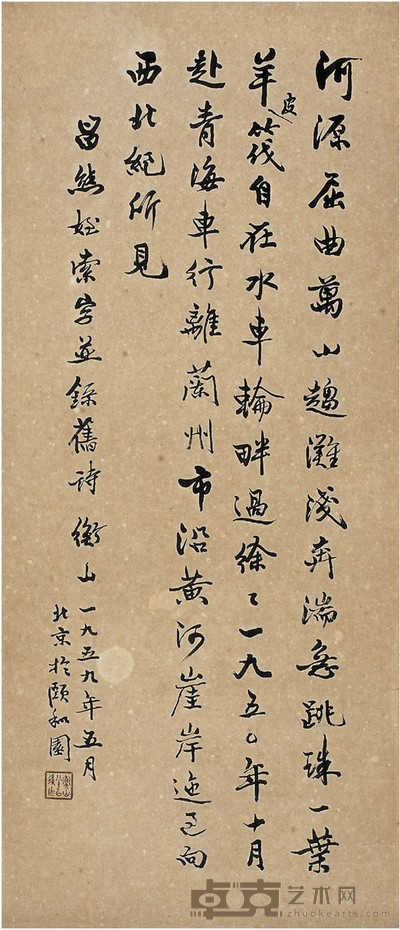 河源屈曲萬山趨灘淺奔湍急跳珠一葉
羊皮筏自在水車輪畔過徐〻一九五〇年十月
赴青海車行離蘭州市沿黃河崖岸迤邐向
西北紀所見
昌然姪索字並錄舊詩衡山一九五九年五月
北京於頤和園
卓克艺术网
zhuokearts.com